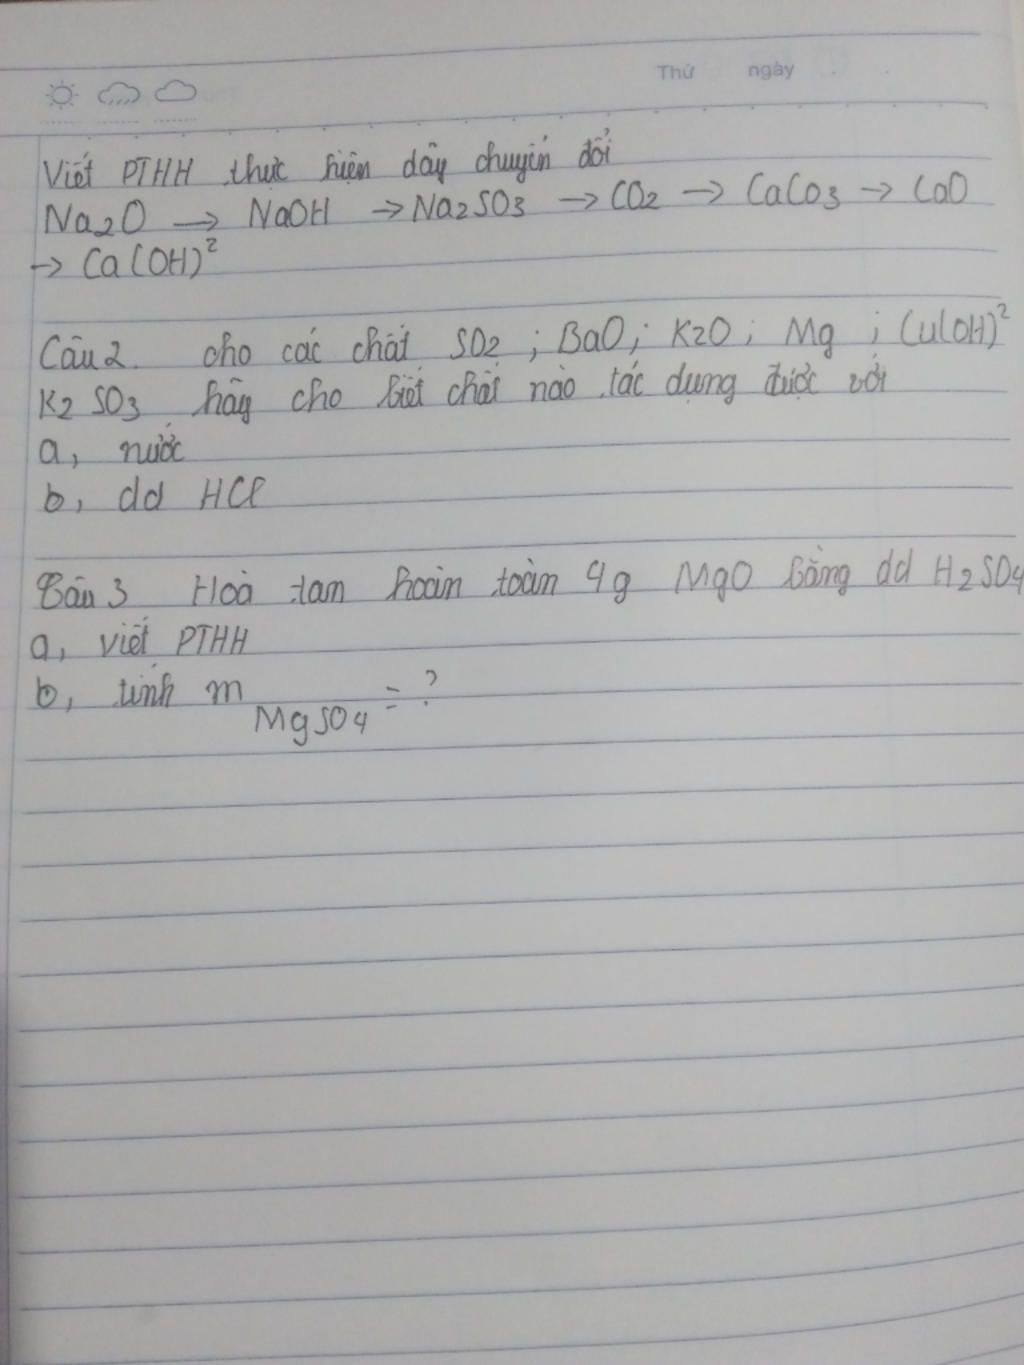 Thứ ngày
Viết PTHH thực hiện dãy chuyển đổi
Na2O → NaOH → Na2SO3 → CO2 → CaCO3 → CaO
→ Ca(OH)²
Câu 2. cho các chất SO2 ; BaO ; K2O ; Mg ; Cu(OH)²
K2SO3 hãy cho biết chất nào tác dụng được với
a, nước
b, dd HCl
Câu 3 Hoà tan hoàn toàn 4g MgO bằng dd H2SO4
a, viết PTHH
b, tính m MgSO4 = ?